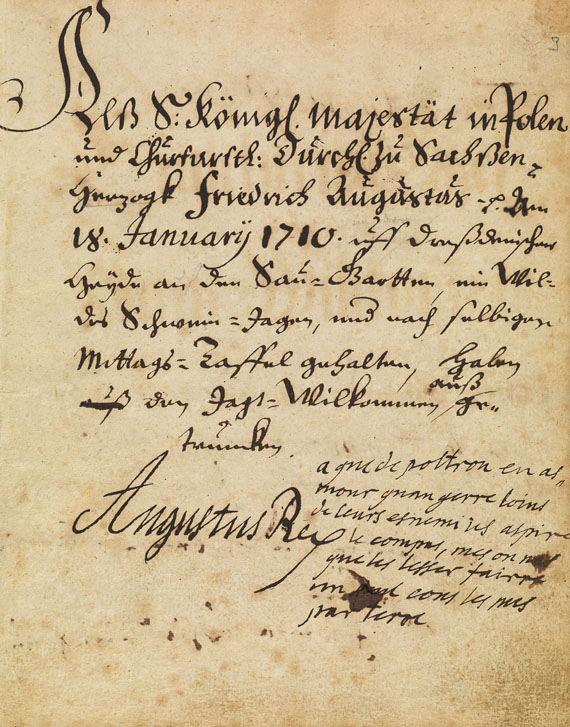 9
Alß Sr. Königl. Majestät in Polen
und Churfürstl: Durchl. zu Sachßen
Hertzogk Friedrich Augustus den
18. January 1710. uff Dreßdenischer
Heyde an den Sau=Gartten, ein Wil-
des Schwein=Jagen, und nach selbigen
Mittags=Taffel gehalten, Haben
auß
den Jagt=Wilkommen ge-
truncken.
Augustus Rex
a que de poltron en a-
mour quan gerre loins
de leurs enemi les aspire
le compas, mes on
que les lesser faire
un cous les mes
par terre